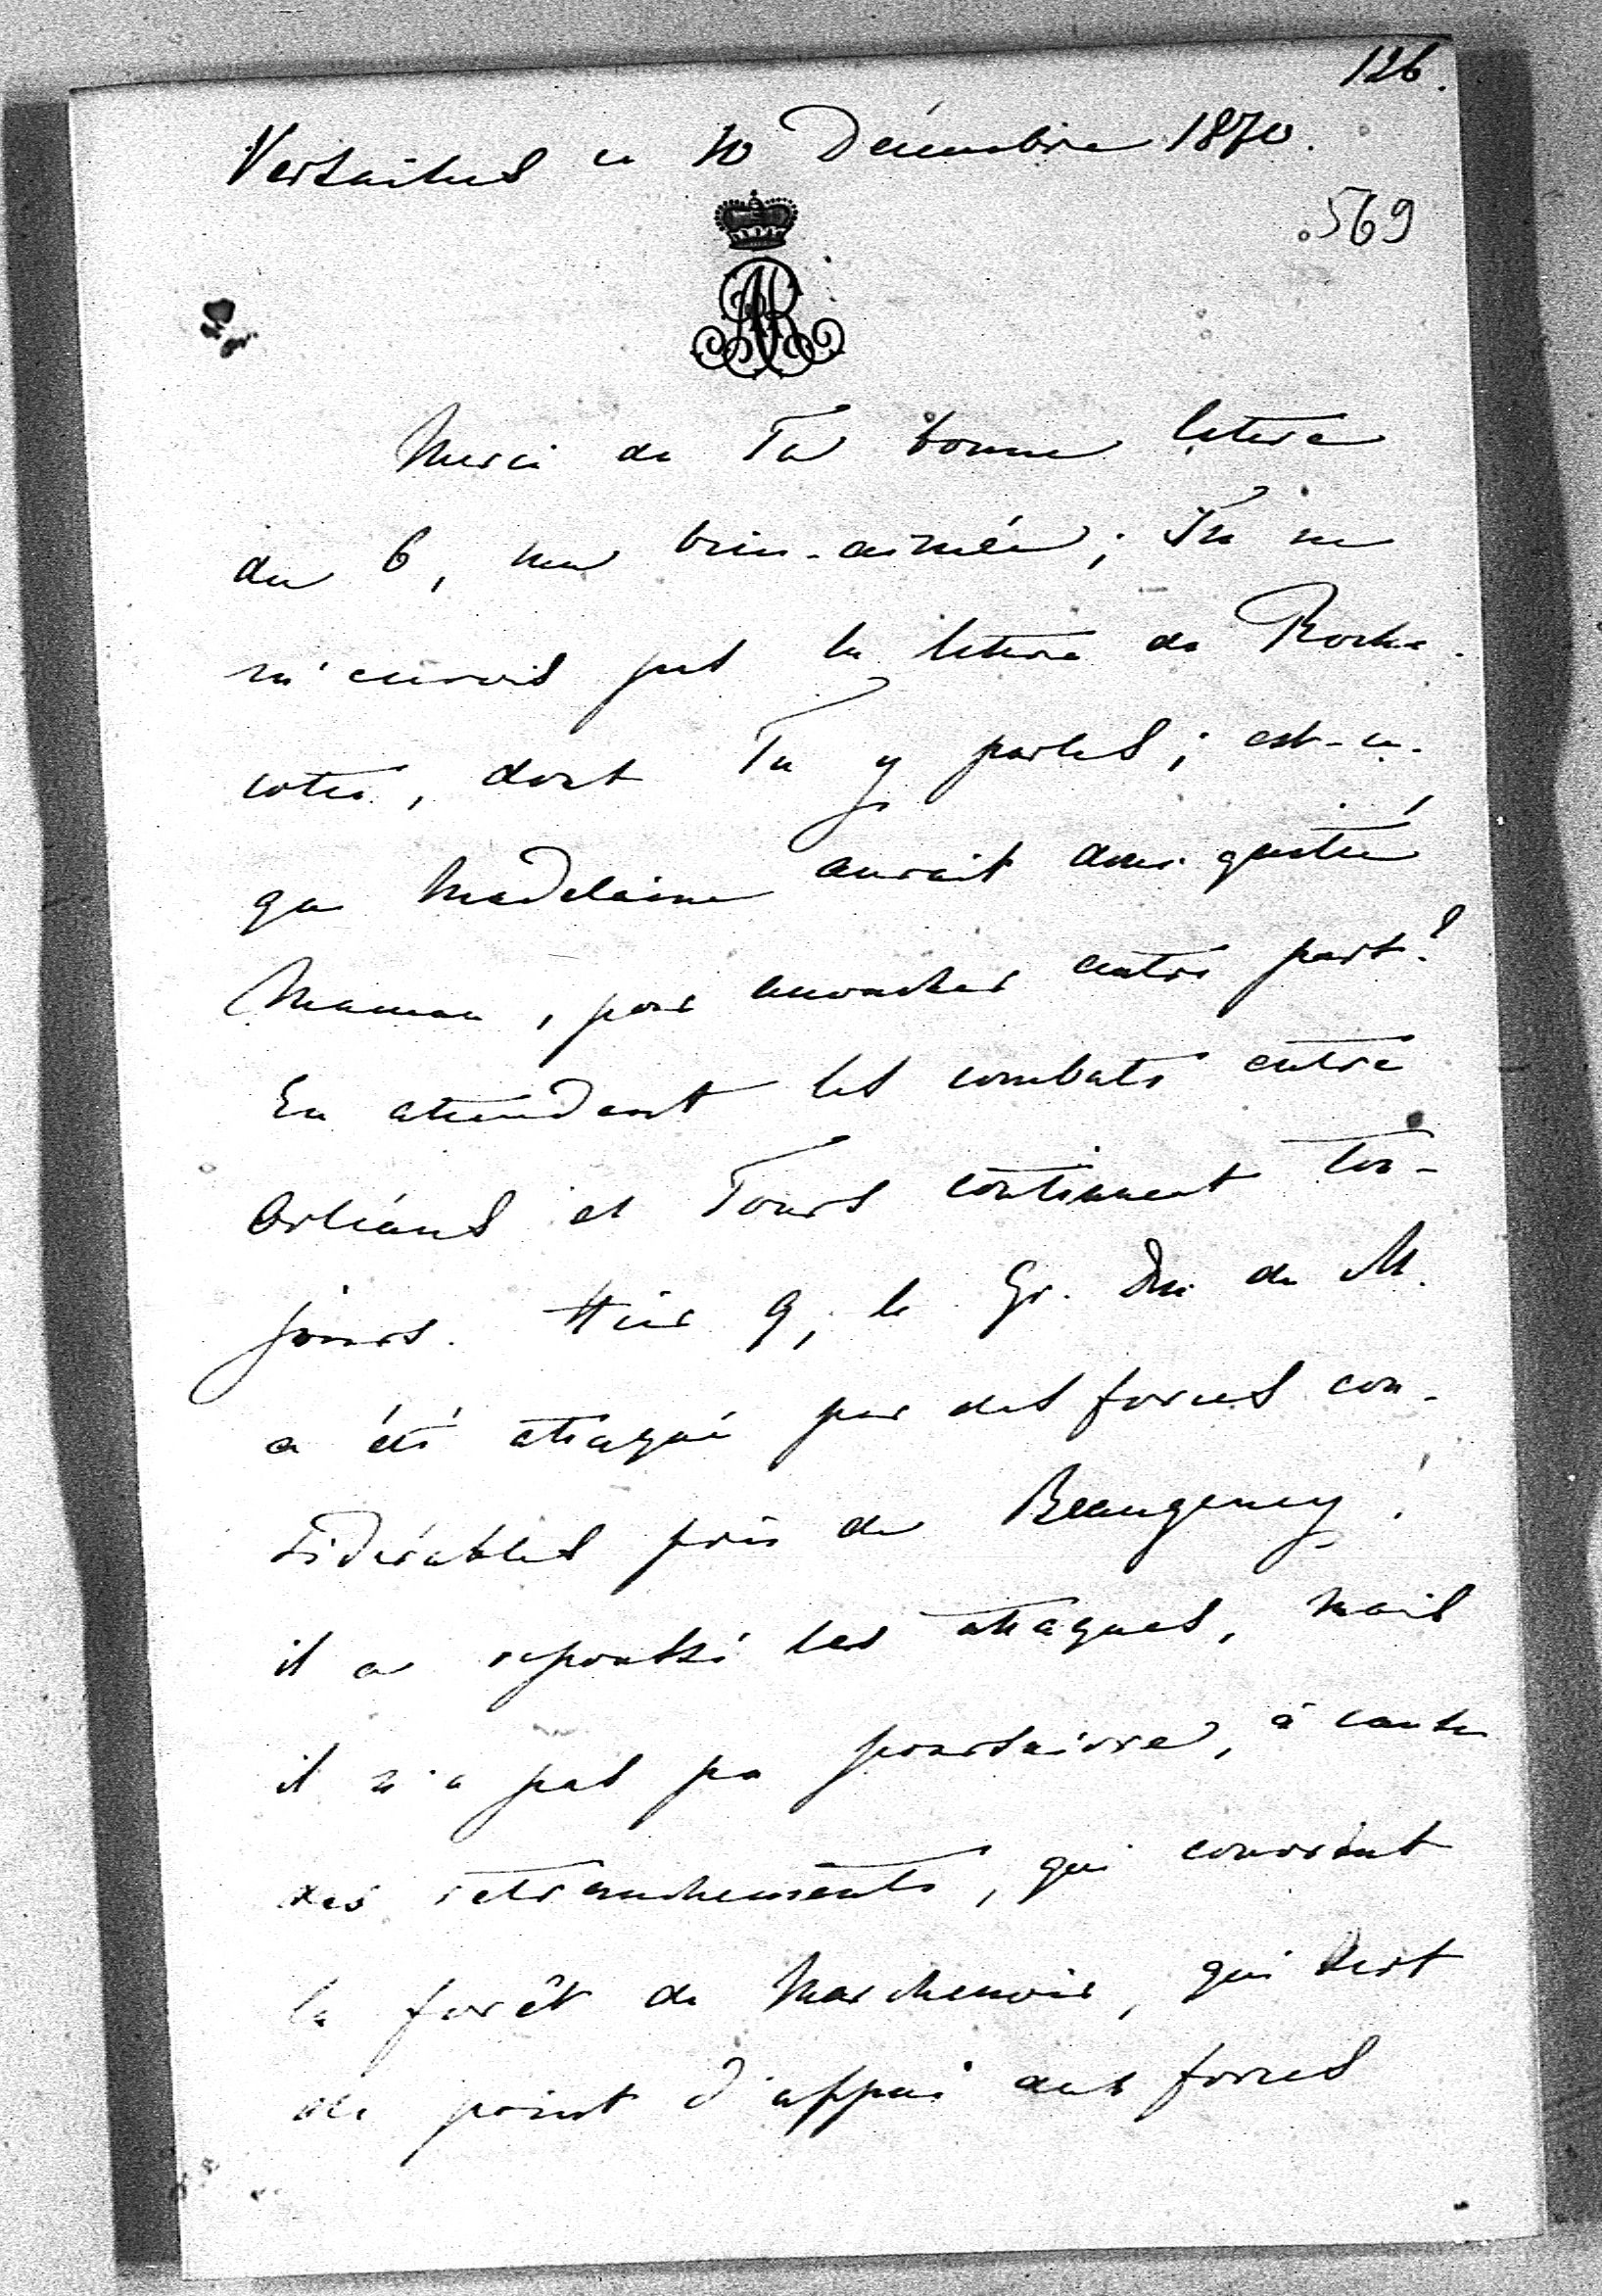 126.
Versailles ce 10 Décembre 1870.
569
AR
Merci de Ta bonne lettre
du 6, ma bien-aimée; Tu ne
m'envois pas la lettre de Roche-
cotte, dont Tu y parles; est-ce-
que Madelaine aurait donc quitté
Maman, pour accoucher autre part?
En attendant les combats entre
Orléans et Tours continuent tou-
jours. Hier 9, le Gr. Duc de M.
a été attaqué par des forces con-
sidérables près de Beaugency;
il a repoussé les attaques, mais
il n'a pas pu poursuivre, à cause
des retranchements, qui couvrent
la forêt de Marchenoir, qui sert
de point d'appui aux forces